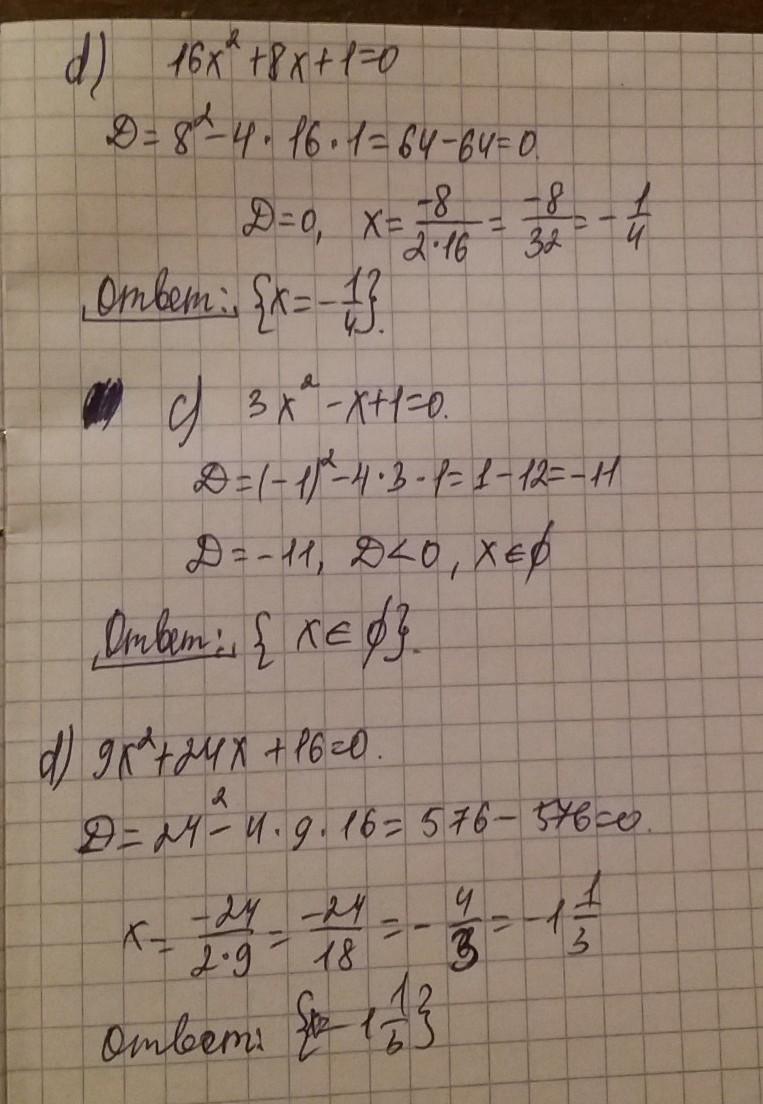 d) 16x²+8x+1=0
D=8²-4·16·1=64-64=0.
D=0, x=-8/2·16=-8/32=-1/4
Ответ: {x=-1/4}.
c) 3x²-x+1=0.
D=(-1)²-4·3·1=1-12=-11
D=-11, D<0, x∈∅
Ответ: {x∈∅}.
d) 9x²+24x+16=0.
D=24²-4·9·16=576-576=0.
x=-24/2·9=-24/18=-4/3=-1 1/3
Ответ: {-1 1/3}